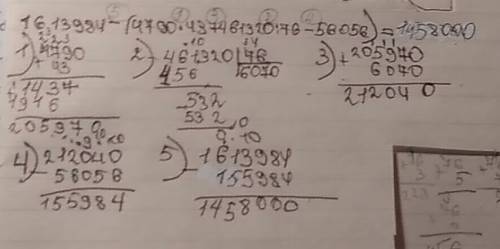 1613984-(4790·43+461320:76-56056)=1458000
1) 4790
+ 43
1437
1916
205970
2) 461320 | 76
456 6070
532
532
0
3) 205970
+ 6070
212040
4) 212040
- 56056
155984
5) 1613984
- 155984
1458000